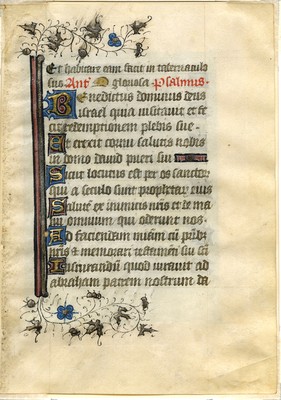 Et habitare eam facit in tabernaculo
suo. Ant̄ O gloriosa. Psalmus.
Benedictus dominus deus
israel quia visitavit et fe
cit redemptionem plebis sue.
Et erexit cornu salutis nobis
in domo david pueri sui
Sicut locutus est per os sanctor̄
qui a seculo sunt prophetar̄ eius
Salutē ex inimicis n̄ris et de ma
nu omnium qui oderunt nos.
Ad faciendam mīam cū patrib̄
n̄ris et memorari testamēti sui sc̄i
Iusiurandū quod iuravit ad
abraham patrem nostrum da